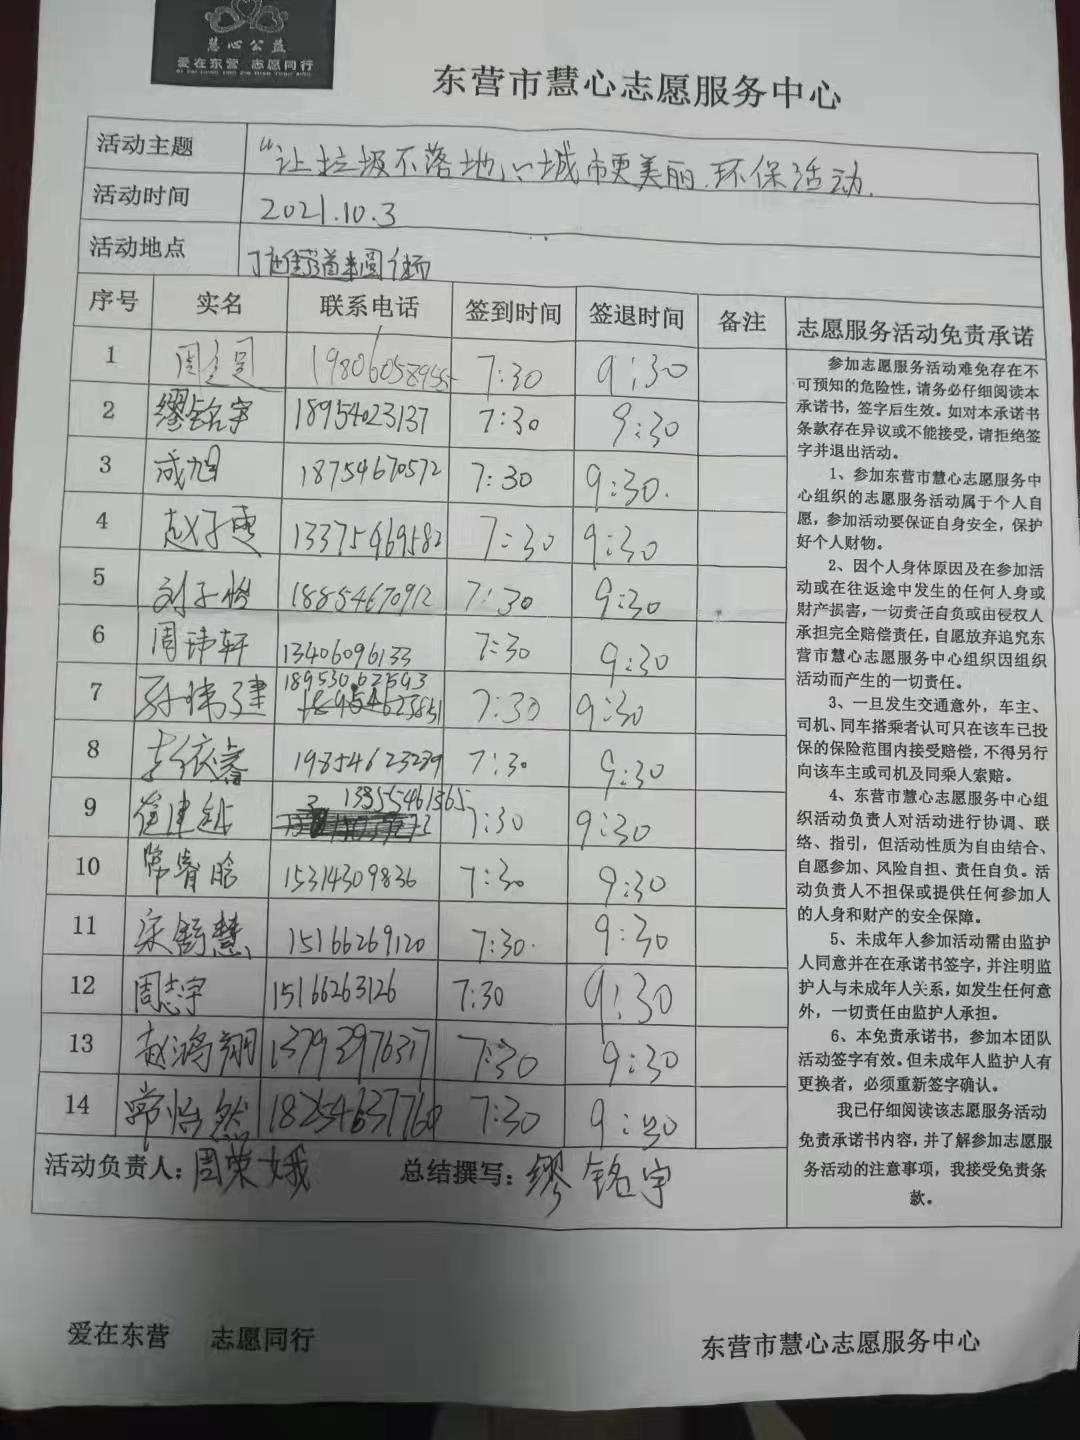 慧心公益
爱在东营 志愿同行
东营市慧心志愿服务中心
活动主题 “让垃圾不落地”城市更美丽.环保活动.
活动时间 2021.10.3
活动地点
序号 实名 联系电话 签到时间 签退时间 备注 志愿服务活动免责承诺
1 7:30 9:30
2 缪铭宇 18954023137 7:30 9:30
3 成旭 18754670572 7:30 9:30.
4 13375469582 7:30 9:30
5 刘子怡 18854670912 7:30 9:30
6 周玮轩 13406096133 7:30 9:30
7 18953062593 7:30 9:30
8 李依睿 19854623239 7:30 9:30
9 崔建越 13355461365 7:30 9:30
10 常睿晗 15314309836 7:30 9:30
11 宋舒慧 15166269120 7:30. 9:30
12 周志宇 15166263126 7:30 9:30
13 赵鸿翔 13793976317 7:30 9:30
14 常怡然 18254637760 7:30 9:30
活动负责人：周荣娥 总结撰写：缪铭宇
参加志愿服务活动难免存在不
可预知的危险性，请务必仔细阅读本
承诺书，签字后生效。如对本承诺书
条款存在异议或不能接受，请拒绝签
字并退出活动。
1、参加东营市慧心志愿服务中
心组织的志愿服务活动属于个人自
愿，参加活动要保证自身安全，保护
好个人财物。
2、因个人身体原因及在参加活
动或在往返途中发生的任何人身或
财产损害，一切责任自负或由侵权人
承担完全赔偿责任，自愿放弃追究东
营市慧心志愿服务中心组织因组织
活动而产生的一切责任。
3、一旦发生交通意外，车主、
司机、同车搭乘者认可只在该车已投
保的保险范围内接受赔偿，不得另行
向该车主或司机及同乘人索赔。
4、东营市慧心志愿服务中心组
织活动负责人对活动进行协调、联
络、指引，但活动性质为自由结合、
自愿参加、风险自担、责任自负。活
动负责人不担保或提供任何参加人
的人身和财产的安全保障。
5、未成年人参加活动需由监护
人同意并在在承诺书签字，并注明监
护人与未成年人关系，如发生任何意
外，一切责任由监护人承担。
6、本免责承诺书，参加本团队
活动签字有效。但未成年人监护人有
更换者，必须重新签字确认。
我已仔细阅读该志愿服务活动
免责承诺书内容，并了解参加志愿服
务活动的注意事项，我接受免责条
款。
爱在东营 志愿同行
东营市慧心志愿服务中心